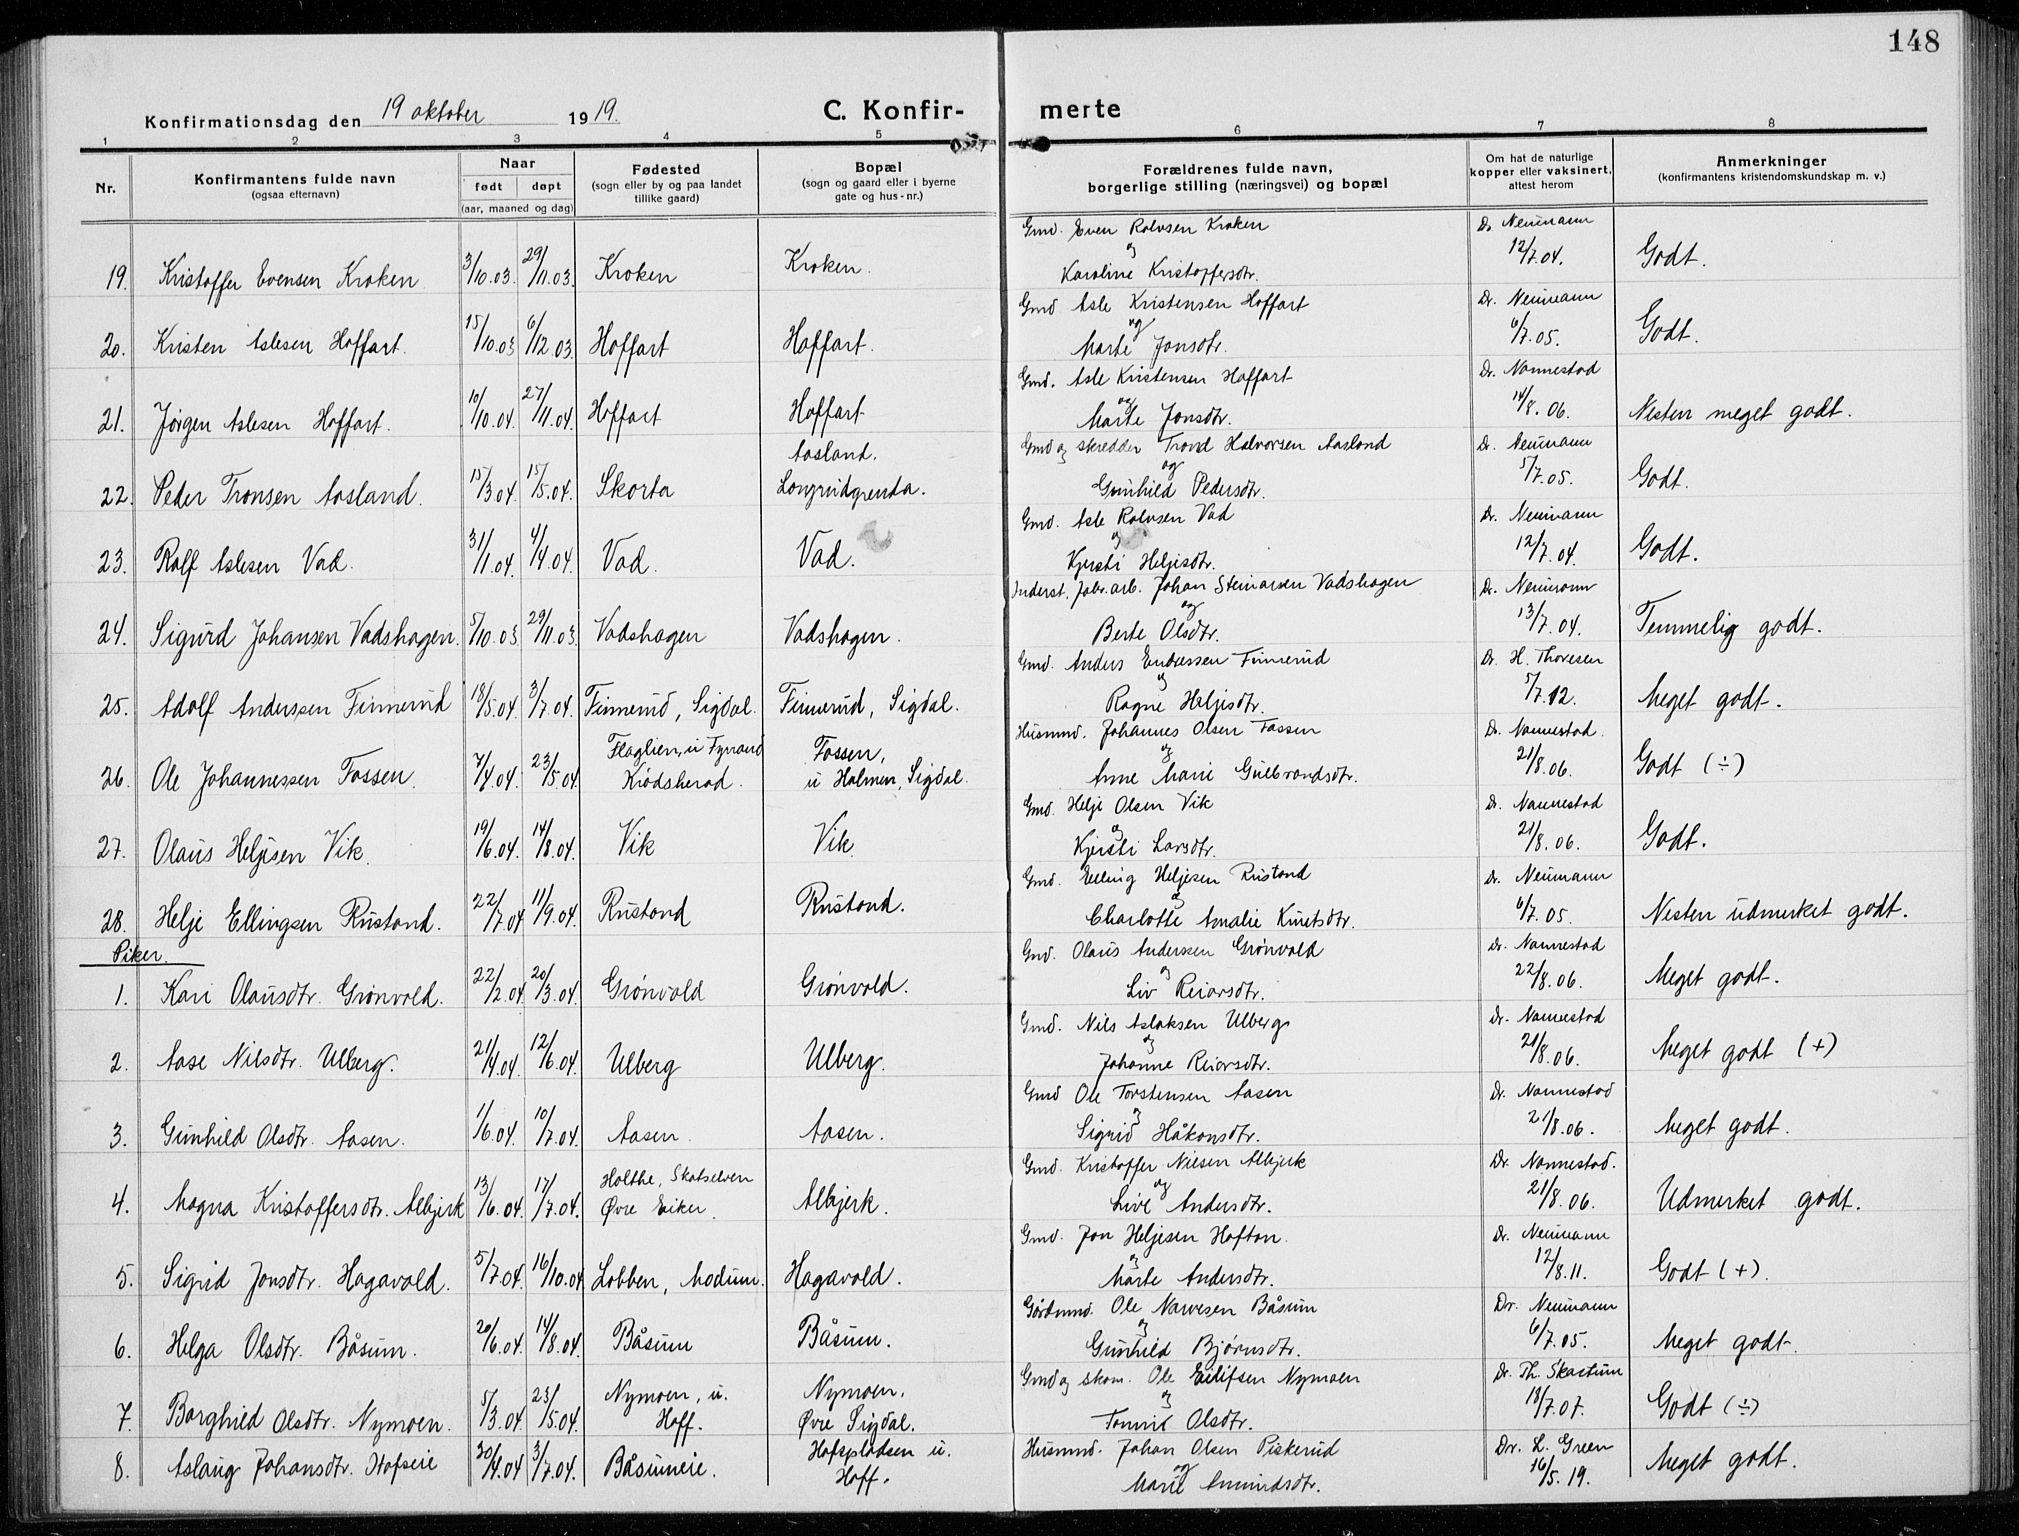 148
Konfirmationsdag den 19 oktober 1919.
C. Konfir- merte
1 2 3 4 5 6 7 8
Nr.
Konfirmantens fulde navn
(ogsaa efternavn)
Naar
født døpt
(aar, maaned og dag)
Fødested
(sogn eller by og paa landet
tillike gaard)
Bopæl
(sogn og gaard eller i byerne
gate og hus-nr.)
Forældrenes fulde navn,
borgerlige stilling (næringsvei) og bopæl
Om hat de naturlige
kopper eller vaksinert,
attest herom
Anmerkninger
(konfirmantens kristendomskundskap m. v.)
Gmd. Even Rolvsen Kroken Dr. Neumann
og
19. Kristoffer Evensen Kroken 3/10.03. 29/11.03. Kroken Kroken. Karoline Kristoffersdtr. 12/7.04. Godt.
Gmd Asle Kristensen Hoffart Dr. Neumann
og
20. Kristen Aslesen Hoffart. 15/10.03 6/12.03. Hoffart Hoffart. Marte Jonsdtr. 6/7.05. Godt.
Gmd. Asle Kristensen Hoffart Dr. Nannestad
og
21. Jørgen Aslesen Hoffart. 10/10.04. 27/11.04. Hoffart Hoffart Marte Jonsdtr. 14/8.06. Nesten meget godt.
Aasland. Gmd og skredder Trond Halvorsen Aasland Dr. Neumann
og
22. Peder Tronsen Aasland. 15/3.04. 15/5.04. Skorta Longrudgrenda. Gunhild Pedersdtr. 5/7.05. Godt.
Gmd. Asle Rolvsen Vad Dr. Neumann
og
23. Rolf Aslesen Vad. 31/1.04. 4/4.04. Vad. Vad. Kjersti Heljesdtr. 12/7.04. Godt.
Inderst, fabr.arb. Johan Steinarsen Vadshagen Dr. Neumann
og
24. Sigurd Johansen Vadshagen. 5/10.03 29/11.03. Vadshagen Vadshagen. Berte Olsdtr. 13/7.04. Temmelig godt.
Gmd. Anders Endressen Finnerud Dr. H. Thoresen
og
25. Adolf Anderssen Finnerud 18/5.04. 3/7.04. Finnerud, Sigdal. Finnerud, Sigdal. Ragne Heljesdtr. 5/7.12. Meget godt.
Flaglien, u Fyrrand Fossen, Husmnd. Johannes Olsen Fossen Dr. Nannestad.
og
26. Ole Johannessen Fossen. 7/4.04. 23/5.04. Krødsherad. u Holmen, Sigdal. Anne Marie Gulbrandsdtr. 21/8.06. Godt (÷)
Gmd. Helje Olsen Vik Dr. Nannestad
og
27. Olaus Heljesen Vik. 19/6.04. 14/8.04. Vik Vik Kjersti Larsdtr. 21/8.06. Godt.
Gmd. Elling Heljesen Rustand Dr. Neumann
og
28. Helje Ellingsen Rustand. 22/7.04 11/9.04. Rustand Rustand. Charlotte Amalie Knutsdtr. 6/7.05. Nesten udmerket godt.
Piker. Gmd. Olaus Anderssen Grønvold Dr. Nannestad
og
1. Kari Olausdtr. Grønvold. 22/2.04. 20/3.04. Grønvold Grønvold. Liv Reiarsdtr. 22/8.06. Meget godt.
Gmd. Nils Aslaksen Ulberg Dr. Nannestad
og
2. Aase Nilsdtr. Ulberg. 21/4.04. 12/6.04. Ulberg Ulberg. Johanne Reiarsdtr. 21/8.06. Meget godt (+)
Gmd Ole Torstensen Aasen Dr. Nannestad
og
3. Gunhild Olsdtr. Aasen. 1/6.04. 10/7.04. Aasen. Aasen. Sigrid Håkonsdtr. 21/8.06. Meget godt.
Holthe, Skotselven Gmd. Kristoffer Nilsen Albjerk Dr. Nannestad.
og
4. Magna Kristoffersdtr. Albjerk 13/6.04. 17/7.04. Øvre Eiker. Albjerk. Live Andersdtr. 21/8.06. Udmerket godt.
Gmd. Jon Heljesen Hofton. Dr. Neumann
og
5. Sigrid Jonsdtr. Hagavold. 5/7.04. 16/10.04 Lobben, Modum. Hagavold. Marte Andersdtr. 12/8.11. Godt (+).
Gårdmnd. Ole Narvesen Båsum Dr. Neumann
og
6. Helga Olsdtr. Båsum. 20/6.04. 14/8.04. Båsum Båsum. Gunhild Bjørnsdtr. 6/7.05. Meget godt.
Nymoen, u. Nymoen. Gmd og skom. Ole Eilifsen Nymoen Dr. Th. Skartum
og
7. Borghild Olsdtr. Nymoen. 5/3.04. 23/5.04. Hoff. Øvre Sigdal. Tonnil Olsdtr. 18/7.07. Godt (÷)
Hofspladsen u. Husmnd. Johan Olsen Piskerud Dr. L. Green
og
8. Aslaug Johansdtr. Hofseie 30/4.04 3/7.04. Båsumeie. Hoff. Marie Amundsdtr. 16/5.19. Meget godt.